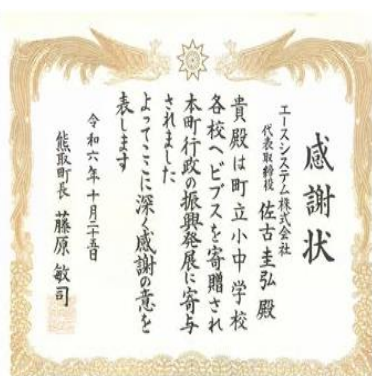 感謝状
エースシステム株式会社
代表取締役 佐古圭弘 殿
貴殿は町立小中学校
各校へビブスを寄贈され
本町行政の振興発展に寄与
されました
よってここに深く感謝の意を
表します
令和六年十月二十五日
熊取町長 藤原敏司